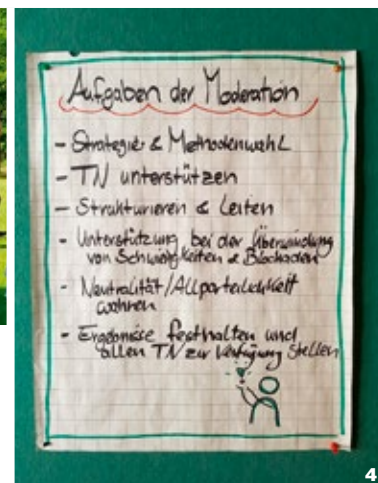 Aufgaben der Moderation
- Strategie & Methodenwahl
- TN unterstützen
- Strukturieren & Leiten
- Unterstützung bei der Überwindung
von Schwierigkeiten & Blockaden
- Neutralität/Allparteilichkeit
wahren
- Ergebnisse festhalten und
allen TN zur Verfügung stellen
4